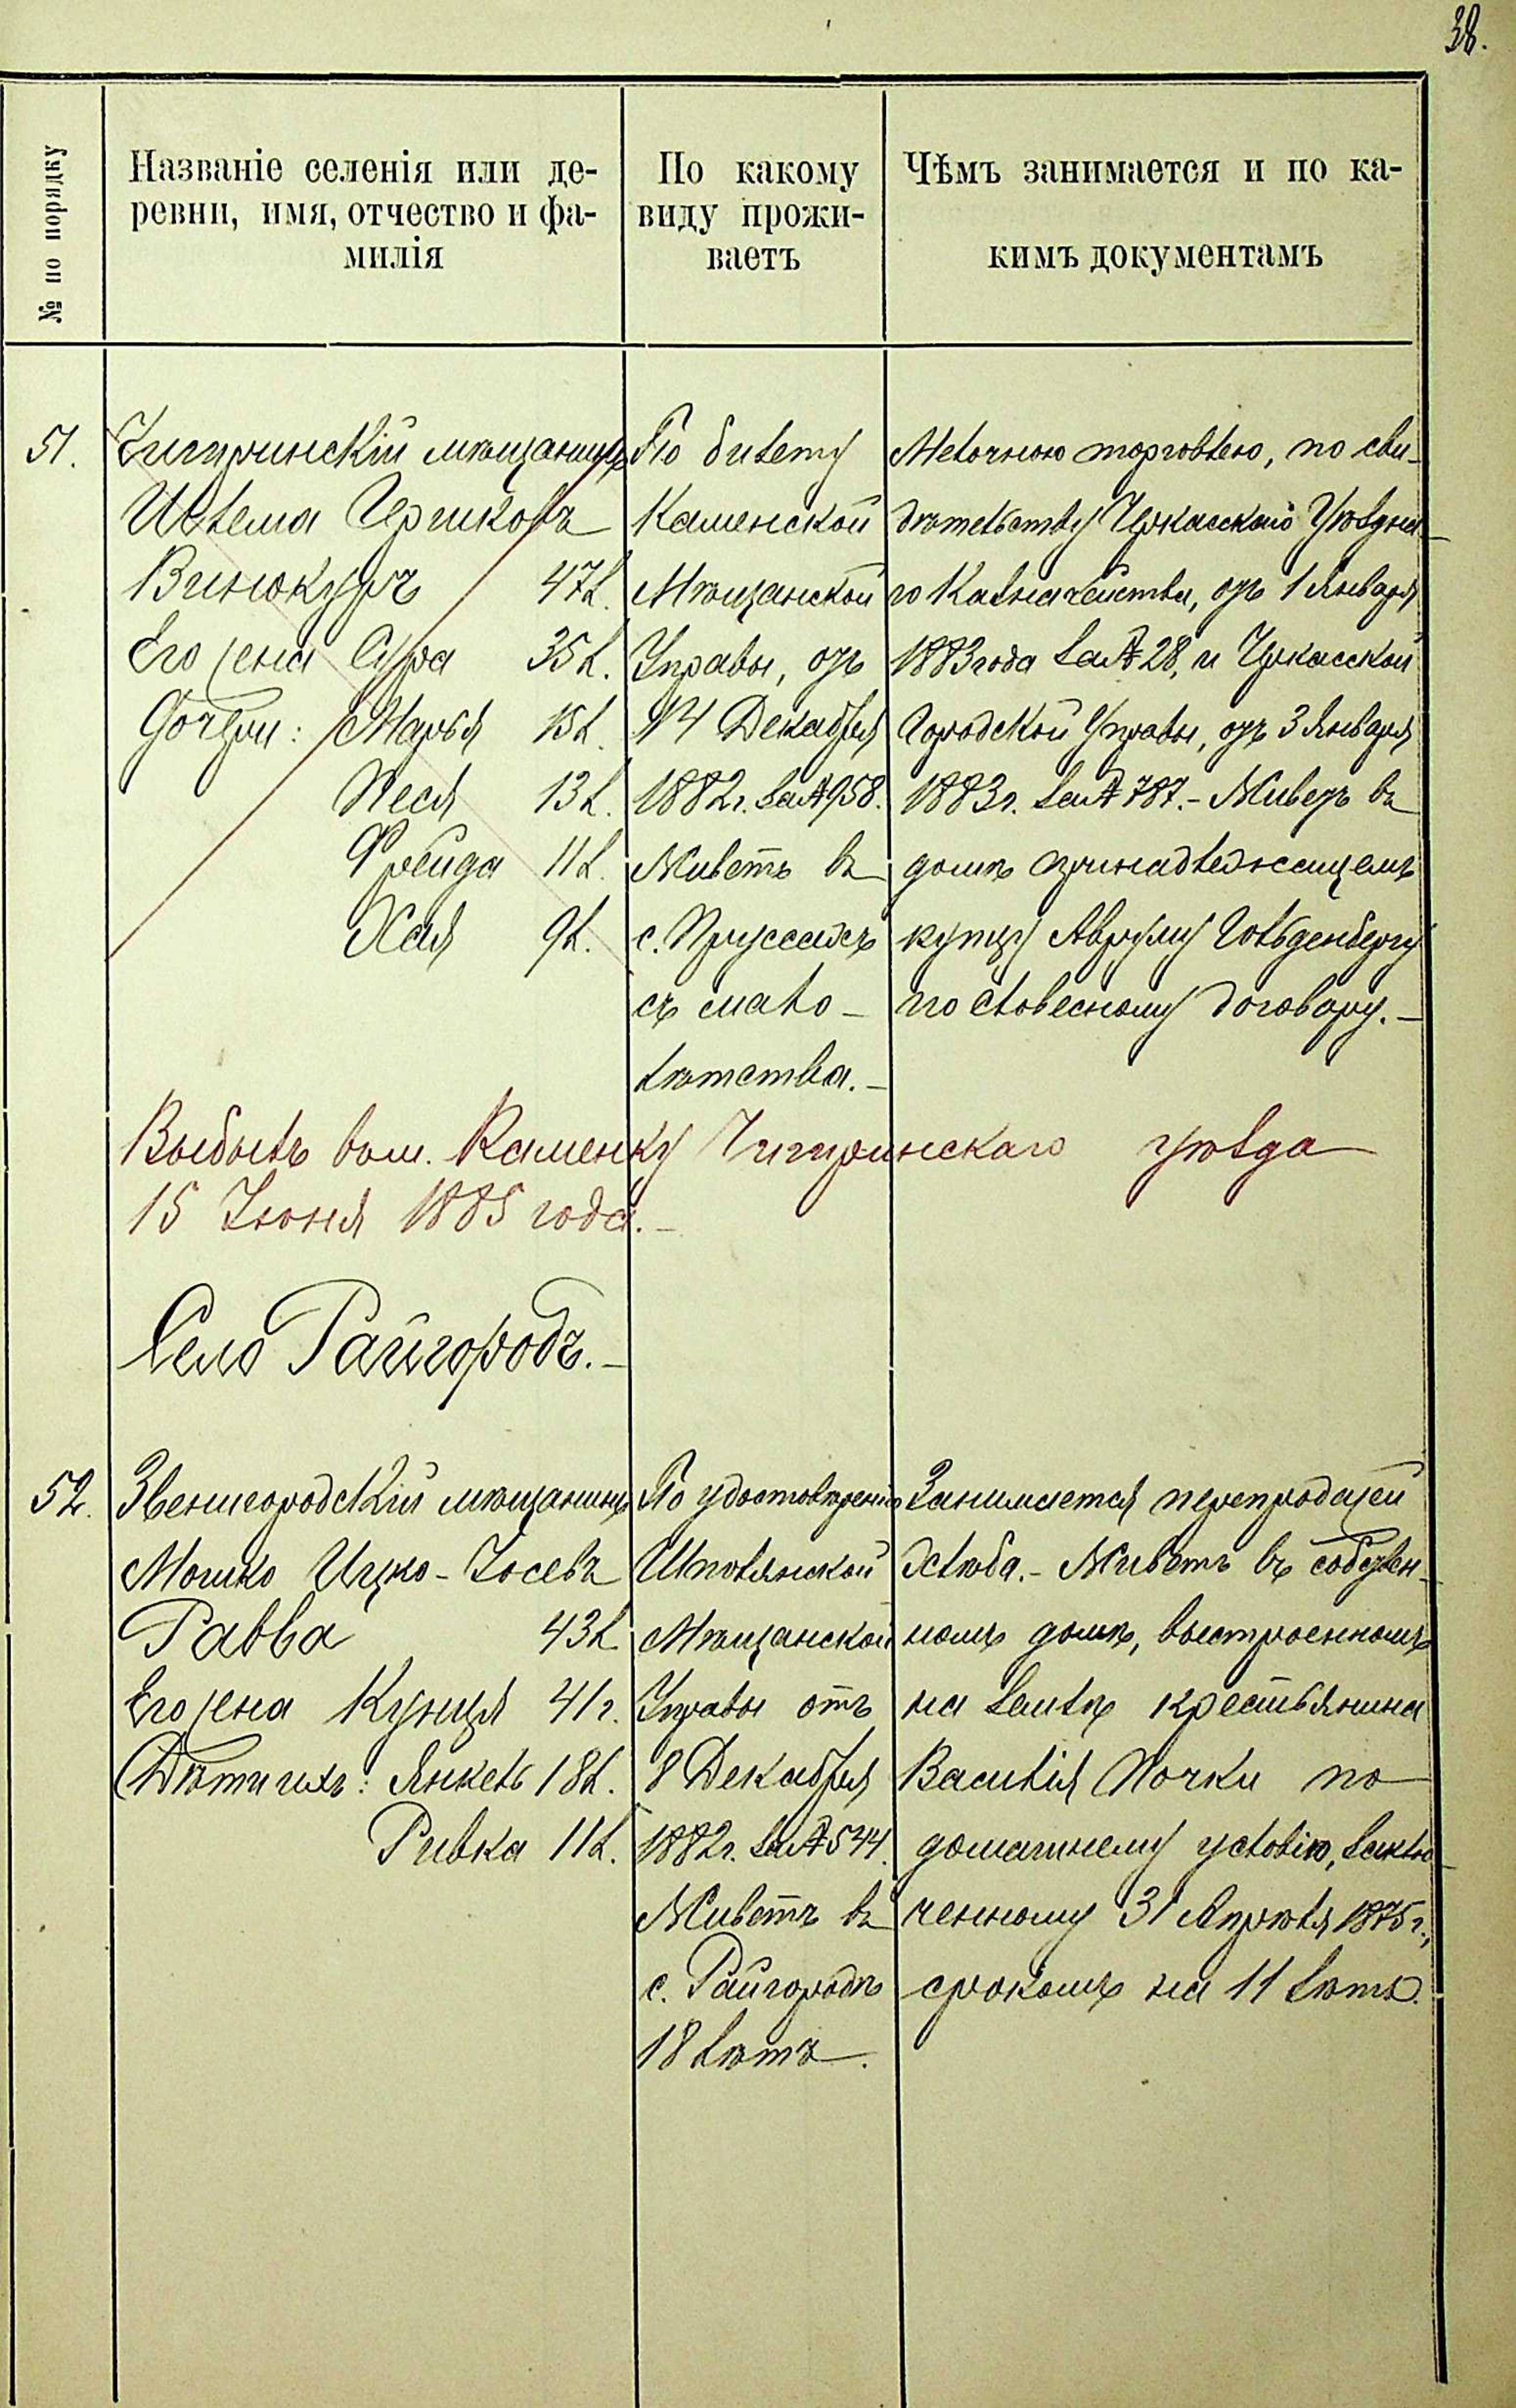 38.
№ по порядку
Названіе селенія или де-
ревни, имя, отчество и фа-
милія
По какому
виду прожи-
ваетъ
Чѣмъ занимается и по ка-
кимъ документамъ
51.
Чигиринскій мѣщанинъ
Гершковъ
Винокуръ 47 л.
Его жена Сура 35 л.
Дочери: Марья 15 л.
Песя 13 л.
Фрейда 11 л.
Хая 9 л.
По билету
Каменской
Мѣщанской
Управы, отъ
14 Декабря
1882 г. за № 958.
Живетъ въ
с. Пруссахъ
съ мало-
лѣтства.-
Мелочною торговлею, по сви-
дѣтельству Черкасскаго Уѣздна-
го Казначейства, отъ 1 Января
1883 года за № 28, и Черкасской
Городской Управы, отъ 3 Января
1883 г. за № 787.- Живетъ въ
домѣ принадлежащемъ
купцу Авруму Гольденбергу
по словесному договору.-
Выбылъ въ м. Каменку Чигиринскаго уѣзда
15 Іюня 1885 года.-
Село Райгородъ.-
52.
Звенигородскій мѣщанинъ
Мошко Ицко-Іосевъ
Равва 43 л.
Его жена Куница 41 г.
Дѣти ихъ: Янкель 18 л.
Ривка 11 л.
По удостовѣренію
Шполянской
Мѣщанской
Управы отъ
8 Декабря
1882 г. за № 544.
Живетъ въ
с. Райгородѣ
18 лѣтъ.
Занимается перепродажей
хлѣба.- Живетъ въ собствен-
номъ домѣ, выстроенномъ
на землѣ крестьянина
Василія Почки по
домашнему условію, заклю-
ченному 31 Апрѣля 1875 г.,
срокомъ на 11 лѣтъ.